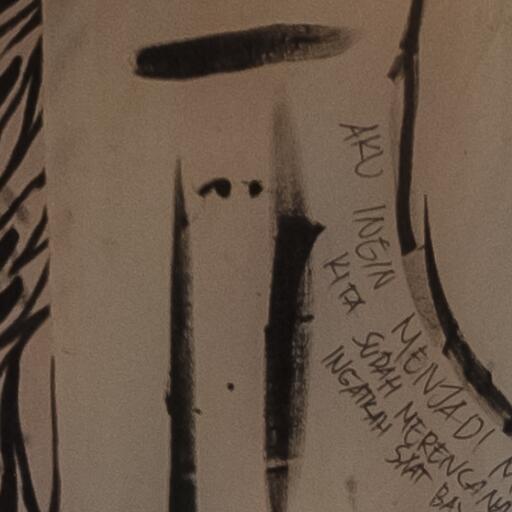 AKU INGIN MENJADI
KITA SUDAH MERENCANA
INGATKAH SAAT